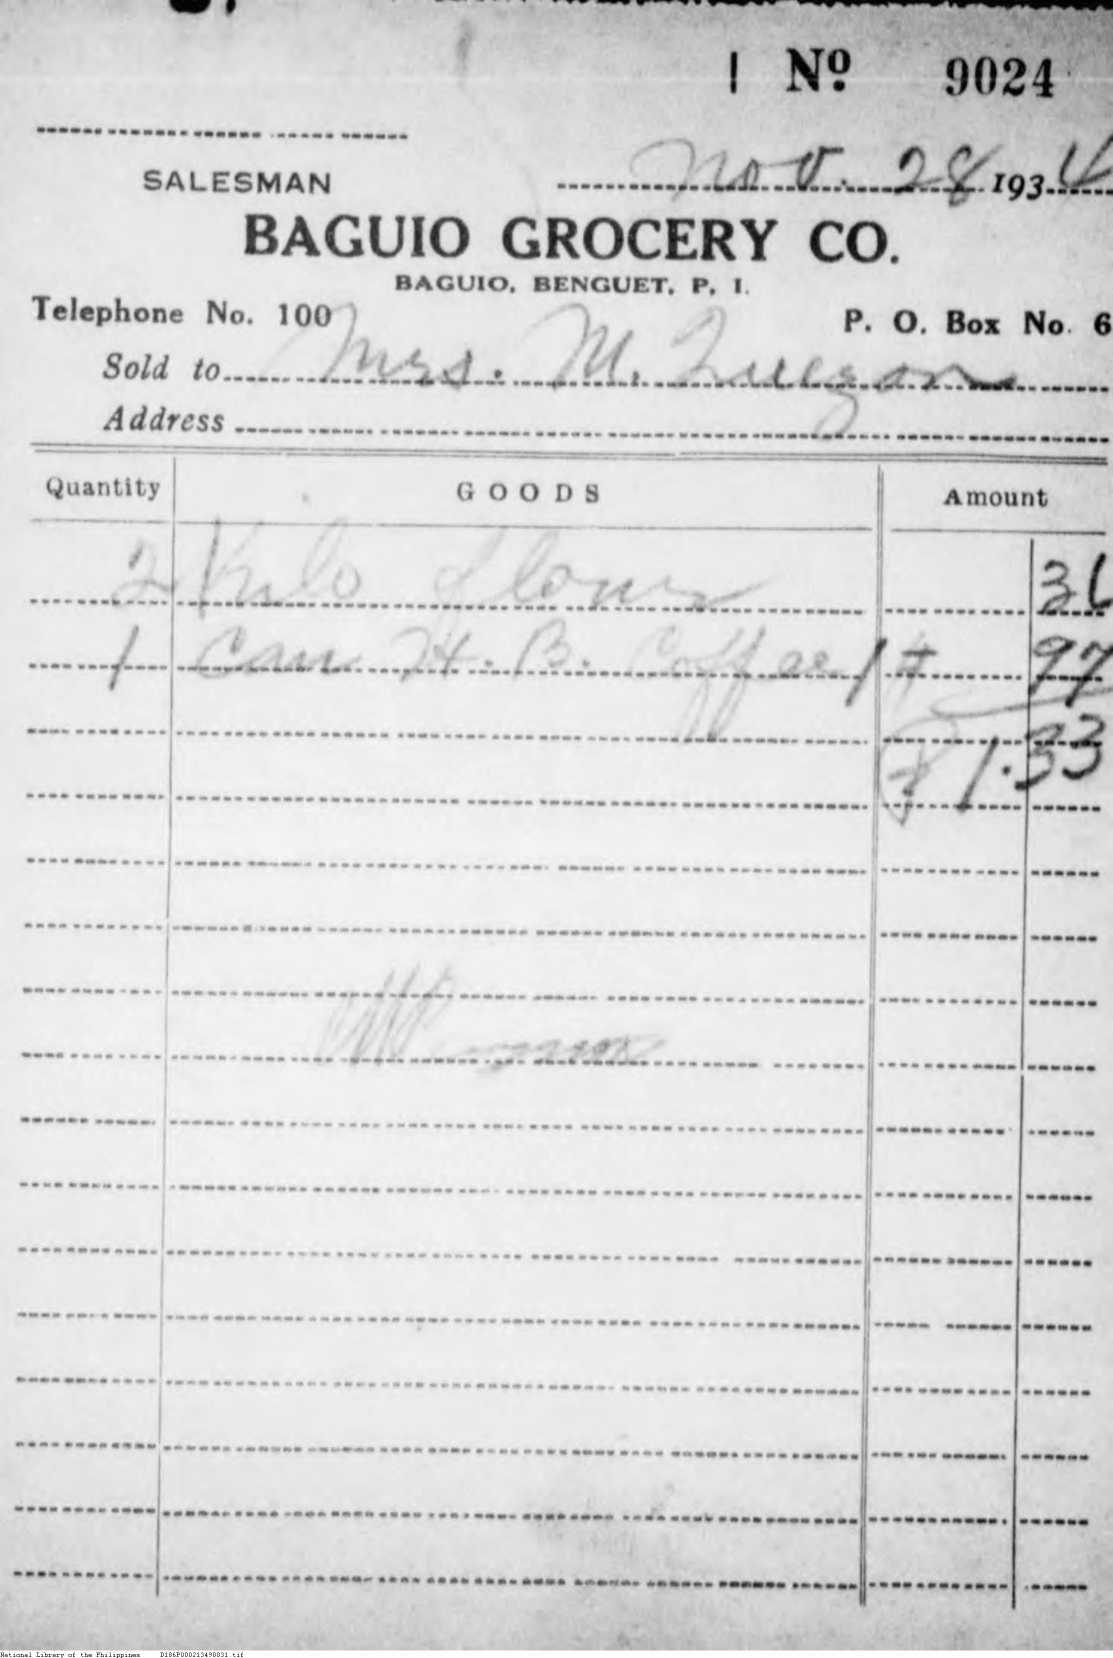 No 9024
SALESMAN
Nov. 28 1934
BAGUIO GROCERY CO.
BAGUIO, BENGUET, P. I.
Telephone No. 100 P. O. Box No. 6
Sold to Mrs. M. Quezon
Address
Quantity GOODS Amount
2 Kilo flour 36
1 Can H. B. Coffee 1# 97
₱ 1.33
National Library of the Philippines D186P000213498831.tif